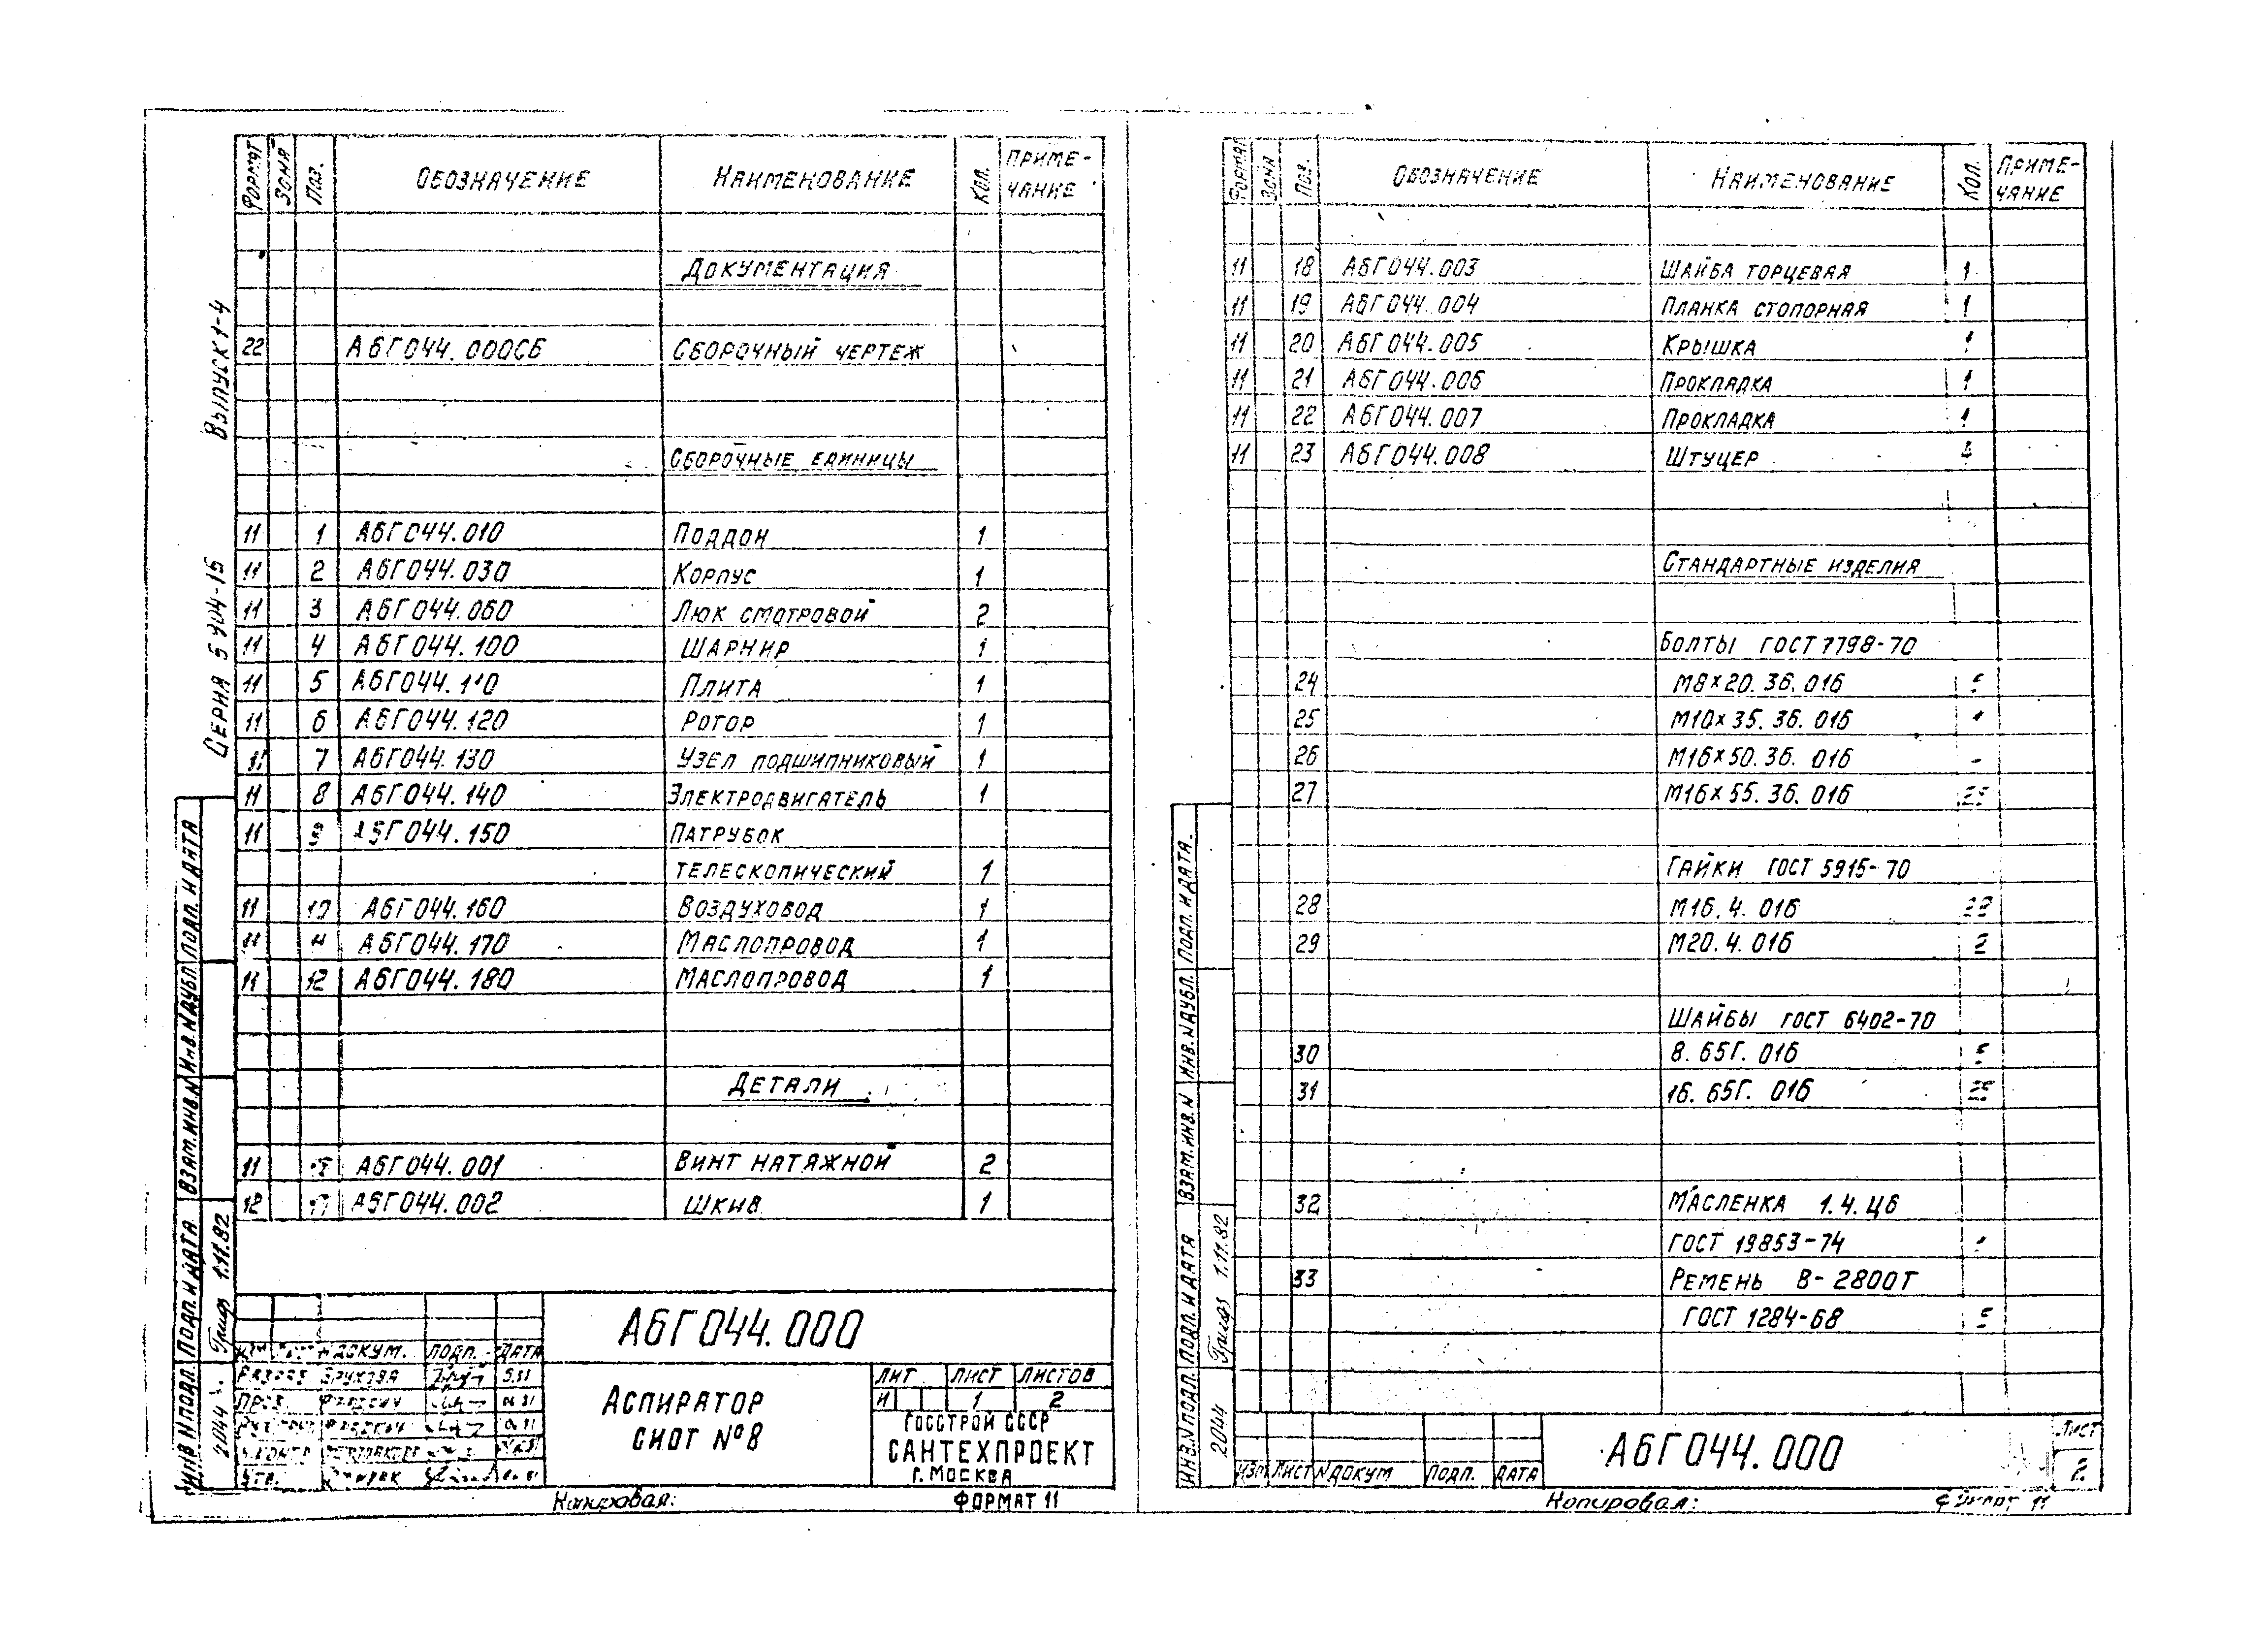 ФОРМАТ ЗОНА ПОЗ. ОБОЗНАЧЕНИЕ НАИМЕНОВАНИЕ КОЛ. ПРИМЕ-
ЧАНИЕ
ДОКУМЕНТАЦИЯ
22 АБГ044.000СБ СБОРОЧНЫЙ ЧЕРТЕЖ
СБОРОЧНЫЕ ЕДИНИЦЫ
11 1 АБГ044.010 ПОДДОН 1
11 2 АБГ044.030 КОРПУС 1
11 3 АБГ044.060 ЛЮК СМОТРОВОЙ 2
11 4 АБГ044.100 ШАРНИР 1
11 5 АБГ044.110 ПЛИТА 1
11 6 АБГ044.120 РОТОР 1
11 7 АБГ044.130 УЗЕЛ ПОДШИПНИКОВЫЙ 1
11 8 АБГ044.140 ЭЛЕКТРОДВИГАТЕЛЬ 1
11 9 АБГ044.150 ПАТРУБОК
ТЕЛЕСКОПИЧЕСКИЙ 1
11 10 АБГ044.160 ВОЗДУХОВОД 1
11 11 АБГ044.170 МАСЛОПРОВОД 1
11 12 АБГ044.180 МАСЛОПРОВОД 1
ДЕТАЛИ
11 АБГ044.001 ВИНТ НАТЯЖНОЙ 2
12 17 АБГ044.002 ШКИВ 1
СЕРИЯ 5.904-15 ВЫПУСК 1-4
ИНВ.№ПОДЛ. ПОДП. И ДАТА ВЗАМ.ИНВ.№ ИНВ.№ДУБЛ. ПОДП. И ДАТА
2044 1.11.82
АБГ044.000
№ДОКУМ. ПОДП. ДАТА
РАЗРАБ. 5.81
ПРОВ.
Н.КОНТР.
УТВ.
АСПИРАТОР
СИОТ №8
ЛИТ. ЛИСТ ЛИСТОВ
И 1 2
ГОССТРОЙ СССР
САНТЕХПРОЕКТ
Г. МОСКВА
Копировал: ФОРМАТ 11
ФОРМАТ ЗОНА ПОЗ. ОБОЗНАЧЕНИЕ НАИМЕНОВАНИЕ КОЛ. ПРИМЕ-
ЧАНИЕ
11 18 АБГ044.003 ШАЙБА ТОРЦЕВАЯ 1
11 19 АБГ044.004 ПЛАНКА СТОПОРНАЯ 1
11 20 АБГ044.005 КРЫШКА 1
11 21 АБГ044.006 ПРОКЛАДКА 1
11 22 АБГ044.007 ПРОКЛАДКА 1
11 23 АБГ044.008 ШТУЦЕР
СТАНДАРТНЫЕ ИЗДЕЛИЯ
БОЛТЫ ГОСТ 7798-70
24 М8×20.36.016
25 М10×35.36.016
26 М16×50.36.016
27 М16×55.36.016
ГАЙКИ ГОСТ 5915-70
28 М16.4.016
29 М20.4.016 2
ШАЙБЫ ГОСТ 6402-70
30 8.65Г.016
31 16.65Г.016
32 МАСЛЕНКА 1.4.Ц6
ГОСТ 19853-74
33 РЕМЕНЬ В-2800Т
ГОСТ 1284-68
ИНВ.№ПОДЛ. ПОДП. И ДАТА ВЗАМ.ИНВ.№ ИНВ.№ДУБЛ. ПОДП. И ДАТА.
2044 1.11.82
ИЗМ ЛИСТ №ДОКУМ ПОДП. ДАТА
АБГ044.000
ЛИСТ
2
Копировал: ФОРМАТ 11